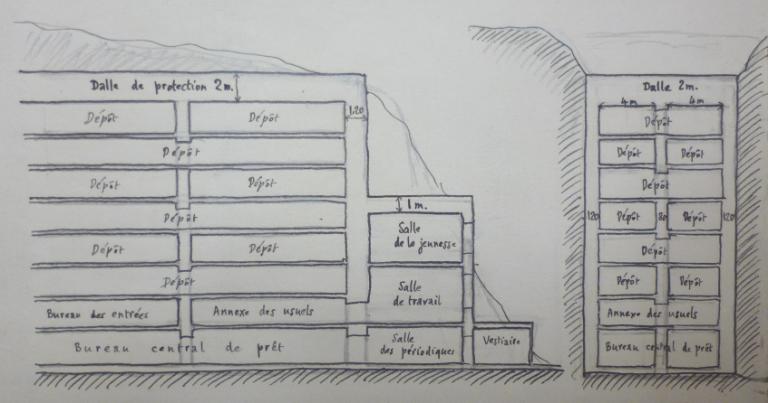 Dalle de protection 2m.
1.20
Dépôt Dépôt
Dépôt
Dépôt Dépôt
Dépôt
Dépôt Dépôt
Dépôt
Bureau des entrées Annexe des usuels
Bureau central de prêt
1m.
Salle
de la jeunesse
Salle
de travail
Salle
des périodiques
Vestiaire
Dalle 2m.
4m 4m
Dépôt
Dépôt Dépôt
Dépôt
120 Dépôt 80 Dépôt 120
Dépôt
Dépôt Dépôt
Annexe des usuels
Bureau central de prêt